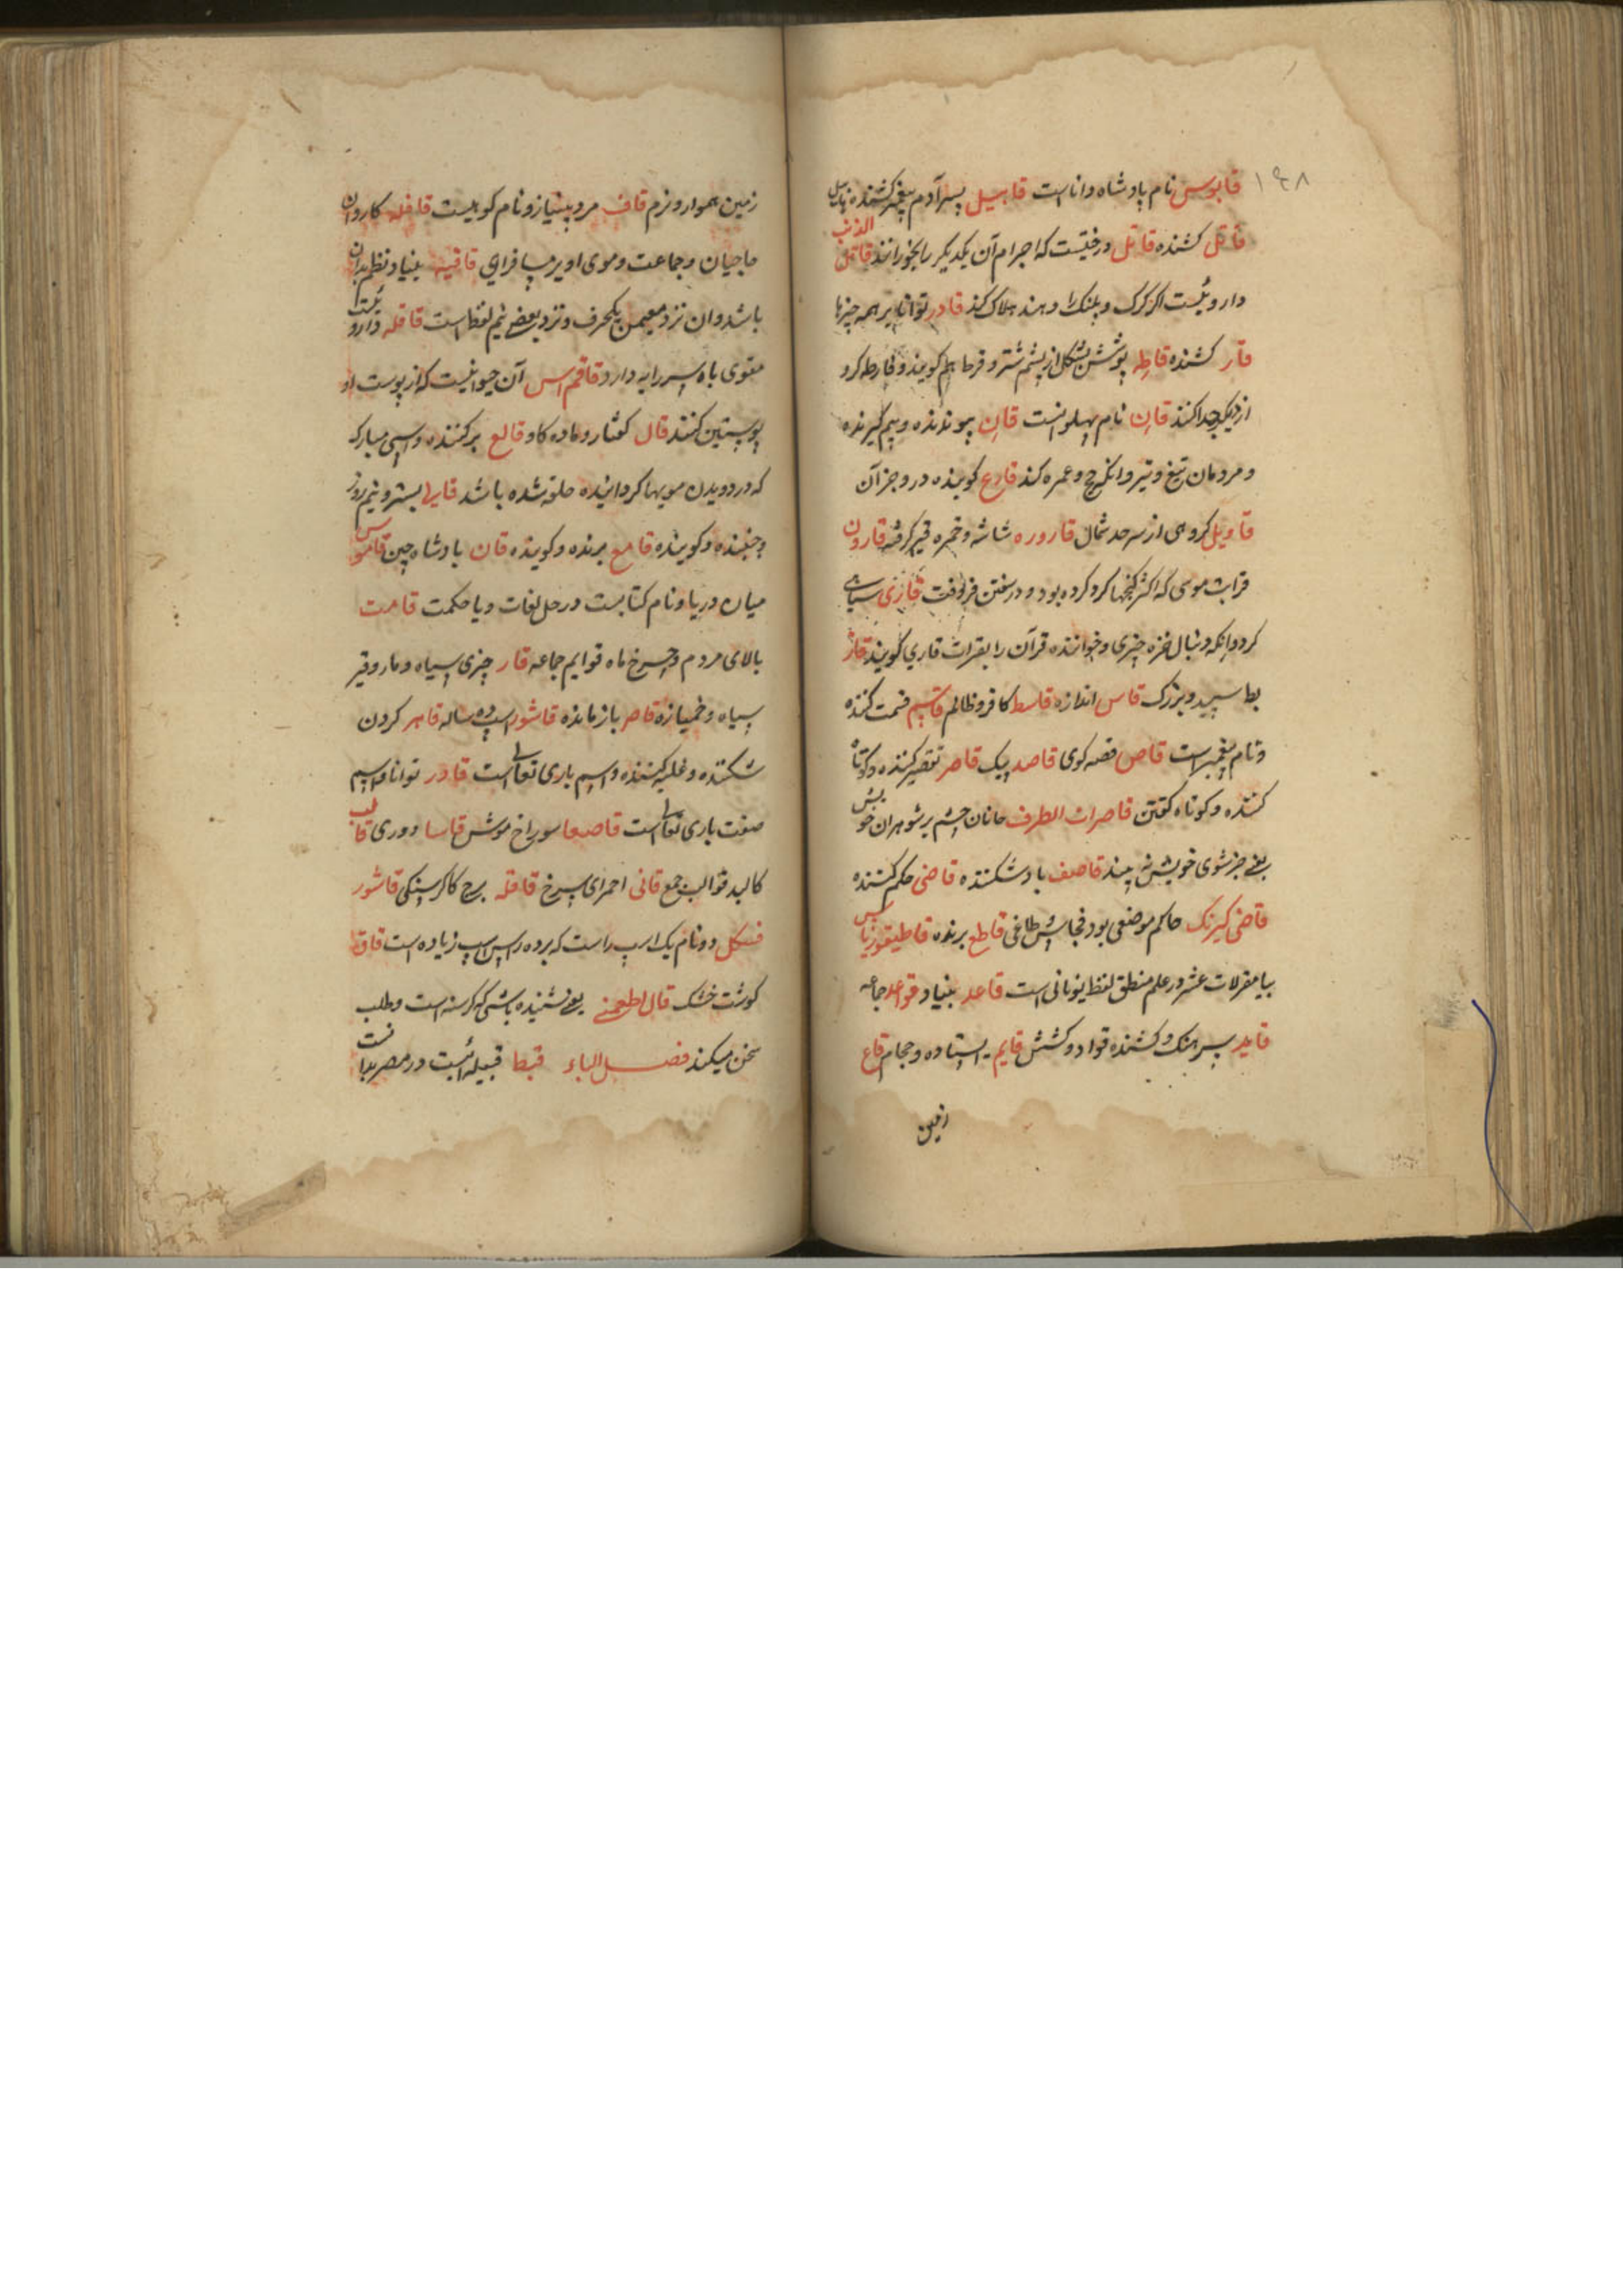 ۱۹۸
قابوس نام پادشاه داناست قابیل پسر آدم پیغمبر کشنده هابیل
قاتل کشنده قاتل درختیست که اجرام آن یکدیگر را بخورانند قاتل الذئب
داروئیست اگر گرگ و پلنگ را دهند هلاک کند قادر توانا بر همه چیزها
قار کشنده قاطه پوشش بشکل از پشم شتر و قرطا هم گویند و قارطه گرد
از دیگر جدا کنند قارن نام پهلوانست قارن پیوندنده و بهم گیرنده
و مردمان تیغ و تیر و انکه حج و عمره کند قارع کوبنده در و جز آن
قاویل گروهی از سرحد شمال قاروره شاشه و خمره قیر گرفته قارون
قرابت موسی که اکثر گنجها گرد کرده بود و در زمین فرو رفت قازی سیاهی
گرد و انکه دنبال خزه چیزی و خواننده قرآن را بقرات قاری گویند قاز
بط سپید و بزرگ قاس اندازه قاسط کافر و ظالم قاسم قسمت کننده
و نام پیغمبر است قاص قصه گوی قاصد پیک قاصر تقصیر کننده و کوتاه
کننده و کوتاه گفتن قاصرات الطرف مانان چشم بر شوهران خویش
یعنی جز شوی خویش نبیند قاصف باد شکننده قاضی حکم کننده
قاضی کیرنک حاکم موضعی بود قاطع برنده قاطیقوریاس
بیا مقولات عشر در علم منطق لفظ یونانی است قاعد بنیاد قواعد جماعه
قاید سرهنگ و کشنده قواد و کشش قایم ایستاده و حجام قاع
زمین
زمین هموار و نرم قاف مرد بینیاز و نام کوهیست قافله کاروان
حاجیان و جماعت و موی او بر سبافرای قافیه بنیاد نظم بدان
باشد و ان نزد بعضی یکحرف و نزد بعضی نیم لفظ است قاقله داروئیست
مقوی باه سر رایه دارد قاقم اس آن حیوانیست که از پوست او
پوستین کنند قال گفتار و ماده گاو قالع برکننده و اسپی مبارک
که در دویدن مویها گردانیده حلقه شده باشد قایل بستر و نیم روز
و خسپنده و گوینده قامع برنده و کوبنده قان پادشاه چین قاموس
میان دریا و نام کتابیست در حل لغات و یا حکمت قامت
بالای مردم و چرخ ماه قوایم جماعه قار چیزی سیاه و مار و قیر
سیاه و خمیازه قاصر بازمانده قاشور اسپ ده ساله قاهر کردن
شکننده و غلبه کننده و اسم باری تعالی است قادر توانا و اسم
صفت باری تعالی است قاصعا سوراخ موش قاسا دوری قالب
کالبد قوالب جمع قانی احمرای سرخ قاقله برج کاکرسنکی قاشور
فسکل دو نام یک اسپ راست که برده راس اسپ زیاده است قاق
گوشت خشک قال اطعمنی یعنی شنیده باشی که گرسنه است و طلب
سخن میکند فصل الباء قبط قبیله ائیست در مصر بدانست